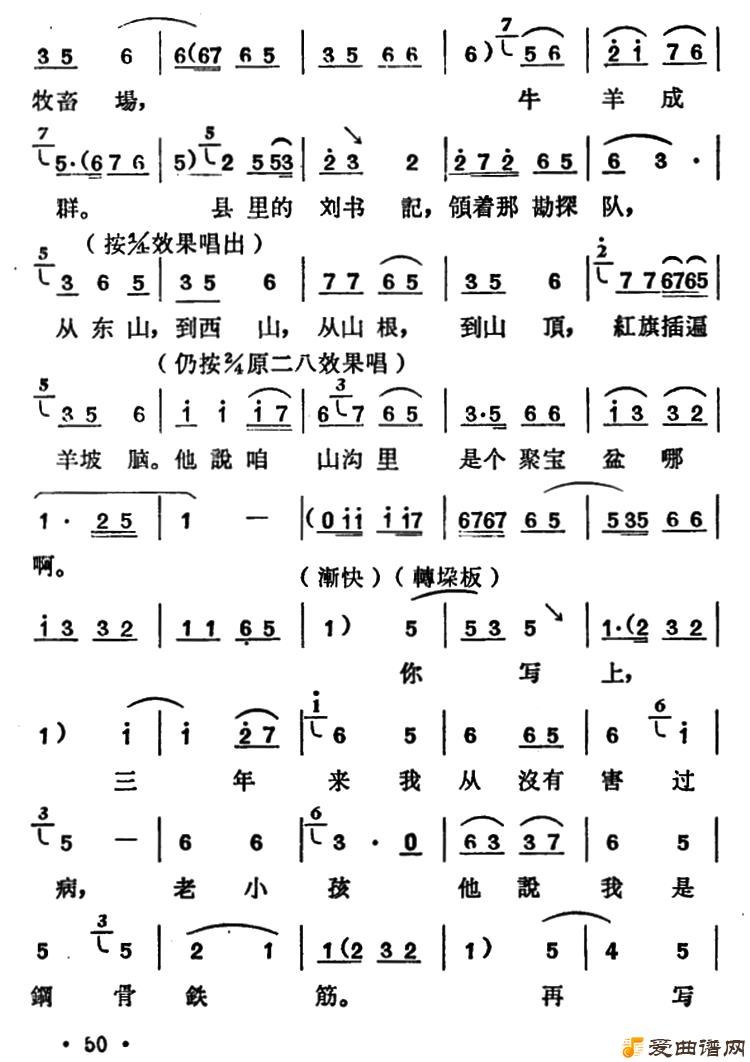 3 5 6 | 6(67 6 5 | 3 5 6 6 | 6) 7 5 6 | 2 1 7 6 |
牧畜場, 牛 羊 成
7 5·(6 7 6 | 5) 5 2 5 53 | 2 3 2 | 2 7 2 6 5 | 6 3 · |
群。 县 里 的 刘 书 記, 領着那 勘探 队,
(按2/4效果唱出)
5 3 6 5 | 3 5 6 | 7 7 6 5 | 3 5 6 | 2 7 7 6765 |
从 东 山, 到西 山, 从山 根, 到山 頂, 紅旗插遍
(仍按2/4原二八效果唱)
5 3 5 6 | i i i 7 | 6 3 7 6 5 | 3·5 6 6 | i 3 3 2 |
羊坡 脑。他 說 咱 山沟 里 是个 聚宝 盆 哪
1 · 2 5 | 1 — | (0 i i i i7 | 6767 6 5 | 5 35 6 6 |
啊。
(漸快)(轉垛板)
i 3 3 2 | 1 1 6 5 | 1) 5 | 5 3 5 | 1·(2 3 2 |
你 写 上,
1) i | i 2 7 | i 6 5 | 6 6 5 | 6 6 i |
三 年 来 我 从 沒有 害 过
3 5 — | 6 6 | 6 3 · 0 | 6 3 3 7 | 6 5 |
病, 老 小 孩 他 說 我 是
5 3 5 | 2 1 | 1(2 3 2 | 1) 5 | 4 5 |
鋼 骨 鉄 筋。 再 写
· 50 ·
爱曲谱网